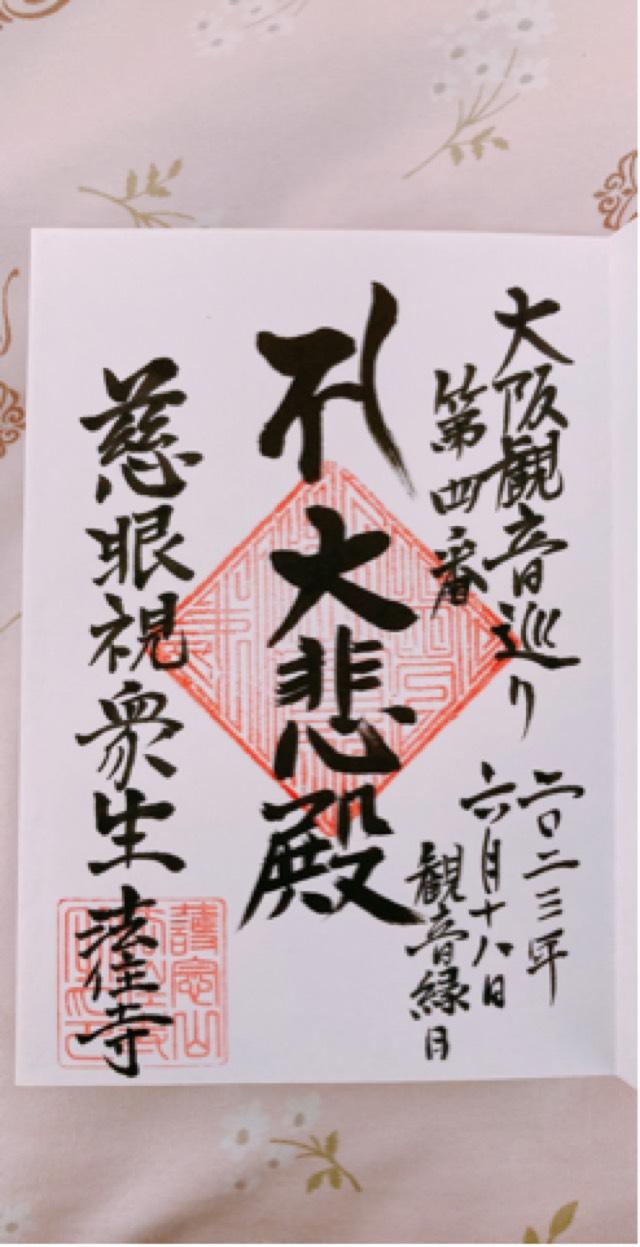 大阪観音巡り
第四番
二〇二三年
六月十八日
観音縁日
大悲殿
慈眼視衆生
法住寺
護念山